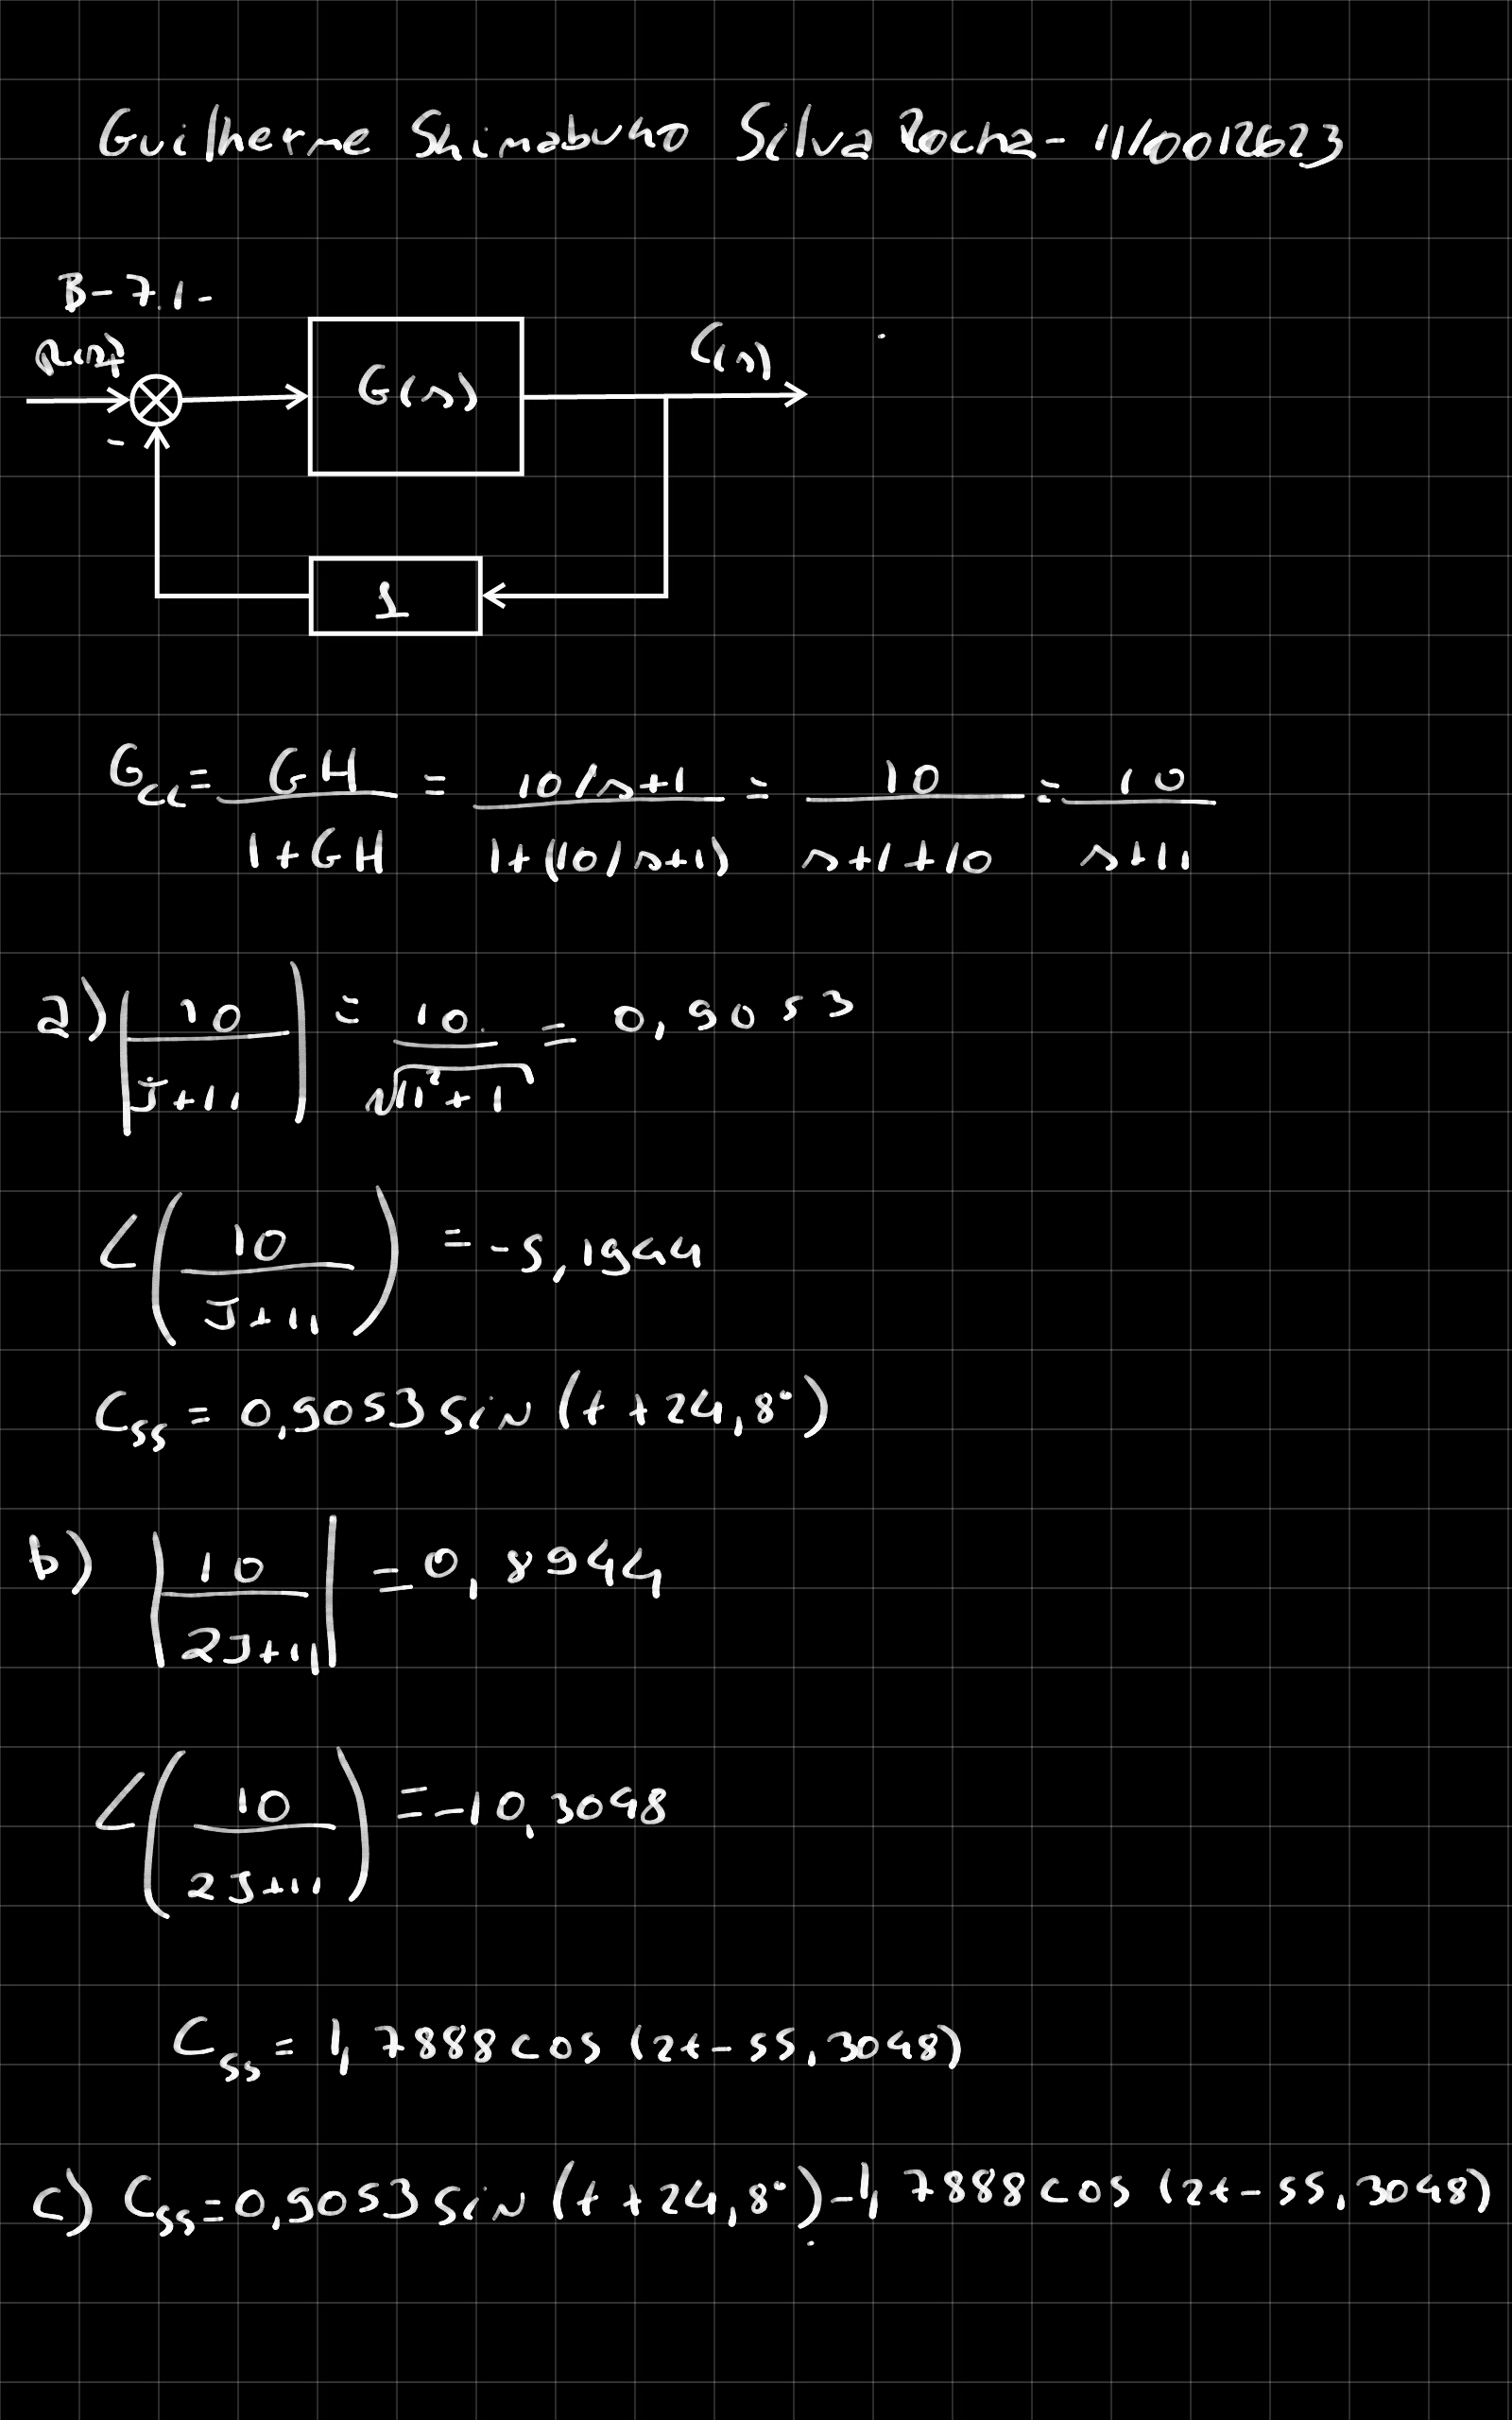 Guilherme Shimabuko Silva Rocha - 11/0012623
B-7.1-
R(s) +
G(s)
C(s)
-
1
G_CL = GH/(1+GH) = (10/s+1)/(1+(10/s+1)) = 10/(s+1+10) = 10/(s+11)
a) |10/(J+11)| = 10/√(11²+1) = 0,9053
∠(10/(J+11)) = -5,1944
C_ss = 0,9053 sin (t + 24,8°)
b) |10/(2J+11)| = 0,8944
∠(10/(2J+11)) = -10,3048
C_ss = 1,7888 cos (2t - 55,3048)
c) C_ss = 0,9053 sin (t + 24,8°) - 1,7888 cos (2t - 55,3048)